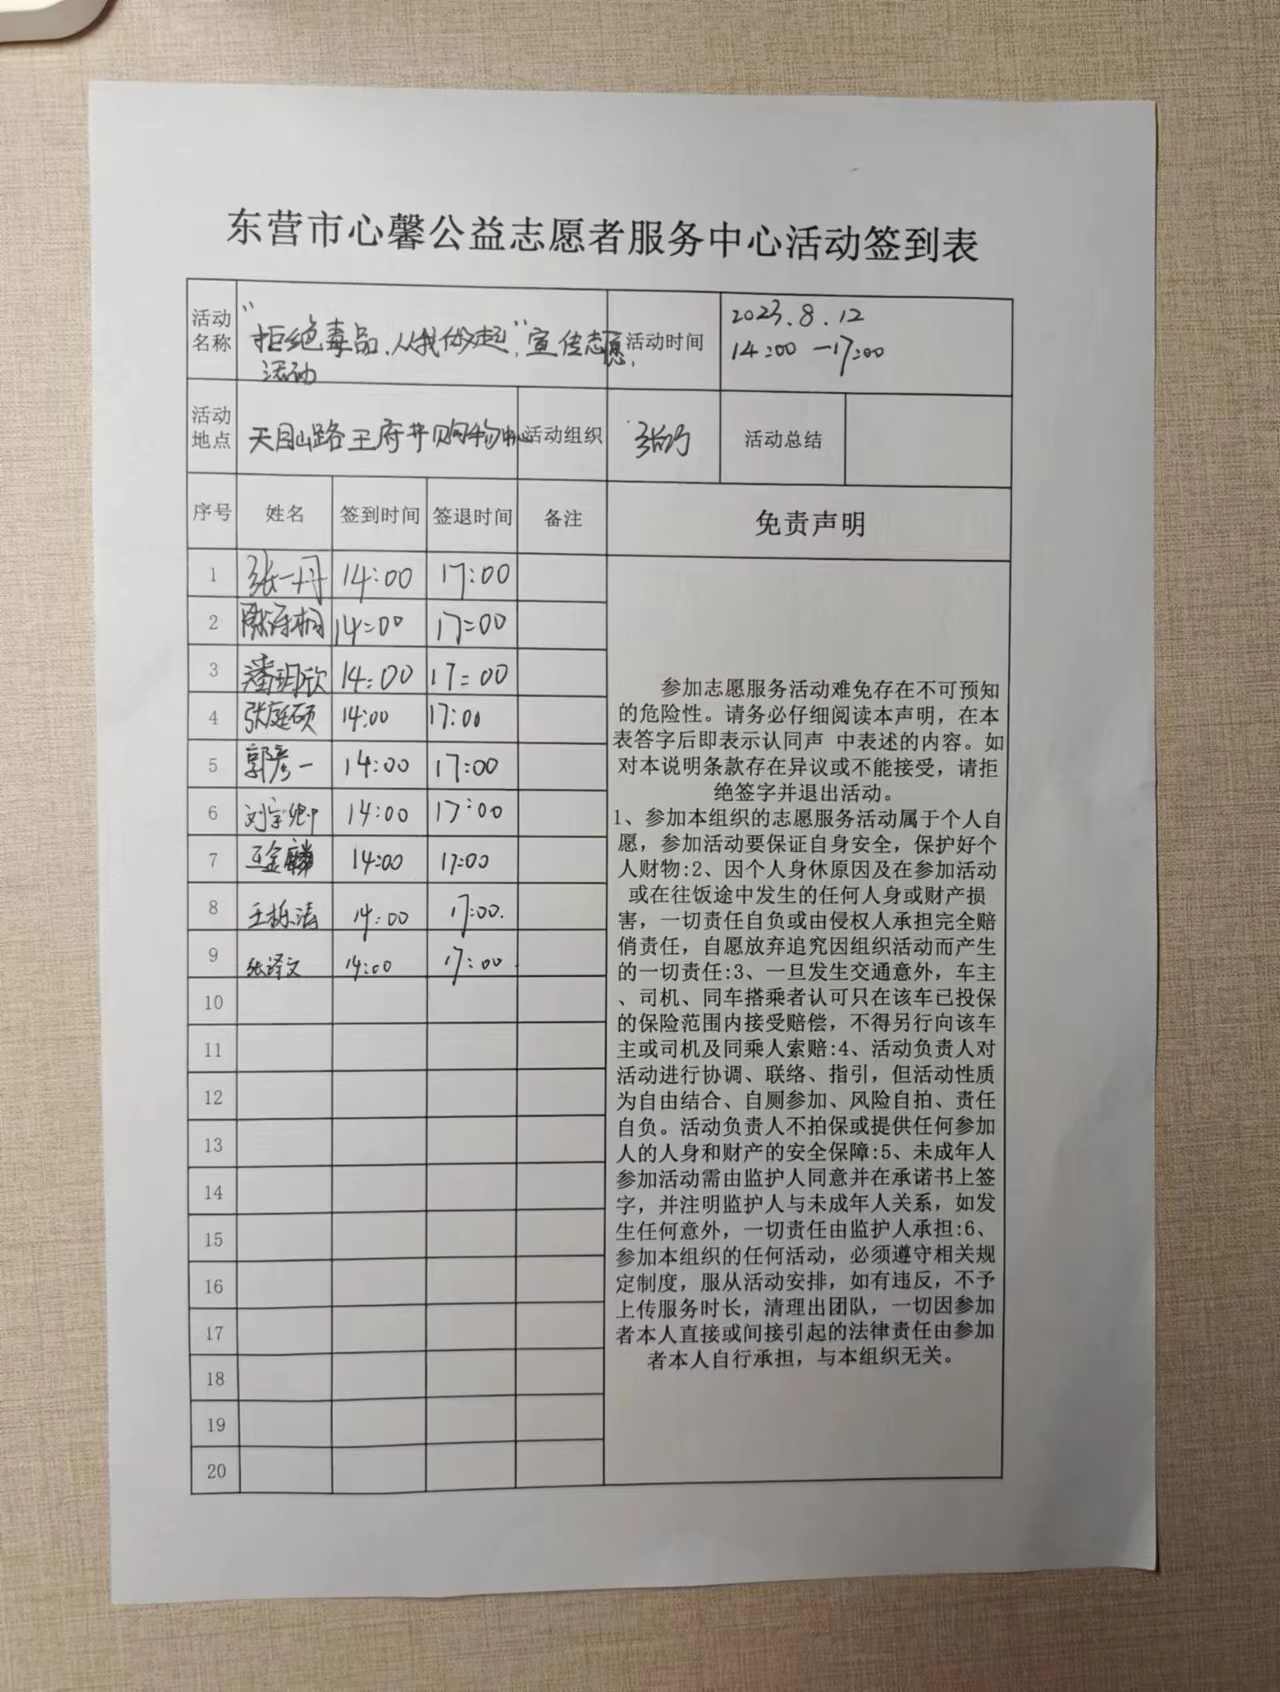 东营市心馨公益志愿者服务中心活动签到表
活动名称 "拒绝毒品,从我做起",宣传志愿活动 活动时间 2023.8.12 14:00-17:00
活动地点 天目山路王府井购物中心 活动组织 活动总结
序号 姓名 签到时间 签退时间 备注 免责声明
1 张一丹 14:00 17:00
2 14:00 17:00
3 潘玥欣 14:00 17:00
4 张庭硕 14:00 17:00
5 郭彦一 14:00 17:00
6 刘宇卿 14:00 17:00
7 王金麟 14:00 17:00
8 王栎涛 14:00 17:00.
9 张译文 14:00 17:00.
10
11
12
13
14
15
16
17
18
19
20
参加志愿服务活动难免存在不可预知
的危险性。请务必仔细阅读本声明，在本
表答字后即表示认同声 中表述的内容。如
对本说明条款存在异议或不能接受，请拒
绝签字并退出活动。
1、参加本组织的志愿服务活动属于个人自
愿，参加活动要保证自身安全，保护好个
人财物:2、因个人身休原因及在参加活动
或在往饭途中发生的任何人身或财产损
害，一切责任自负或由侵权人承担完全赔
俏责任，自愿放弃追究因组织活动而产生
的一切责任:3、一旦发生交通意外，车主
、司机、同车搭乘者认可只在该车已投保
的保险范围内接受赔偿，不得另行向该车
主或司机及同乘人索赔:4、活动负责人对
活动进行协调、联络、指引，但活动性质
为自由结合、自厕参加、风险自拍、责任
自负。活动负责人不拍保或提供任何参加
人的人身和财产的安全保障:5、未成年人
参加活动需由监护人同意并在承诺书上签
字，并注明监护人与未成年人关系，如发
生任何意外，一切责任由监护人承担:6、
参加本组织的任何活动，必须遵守相关规
定制度，服从活动安排，如有违反，不予
上传服务时长，清理出团队，一切因参加
者本人直接或间接引起的法律责任由参加
者本人自行承担，与本组织无关。